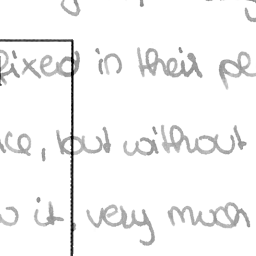 fixed in their pe
ce, but without
it, very much